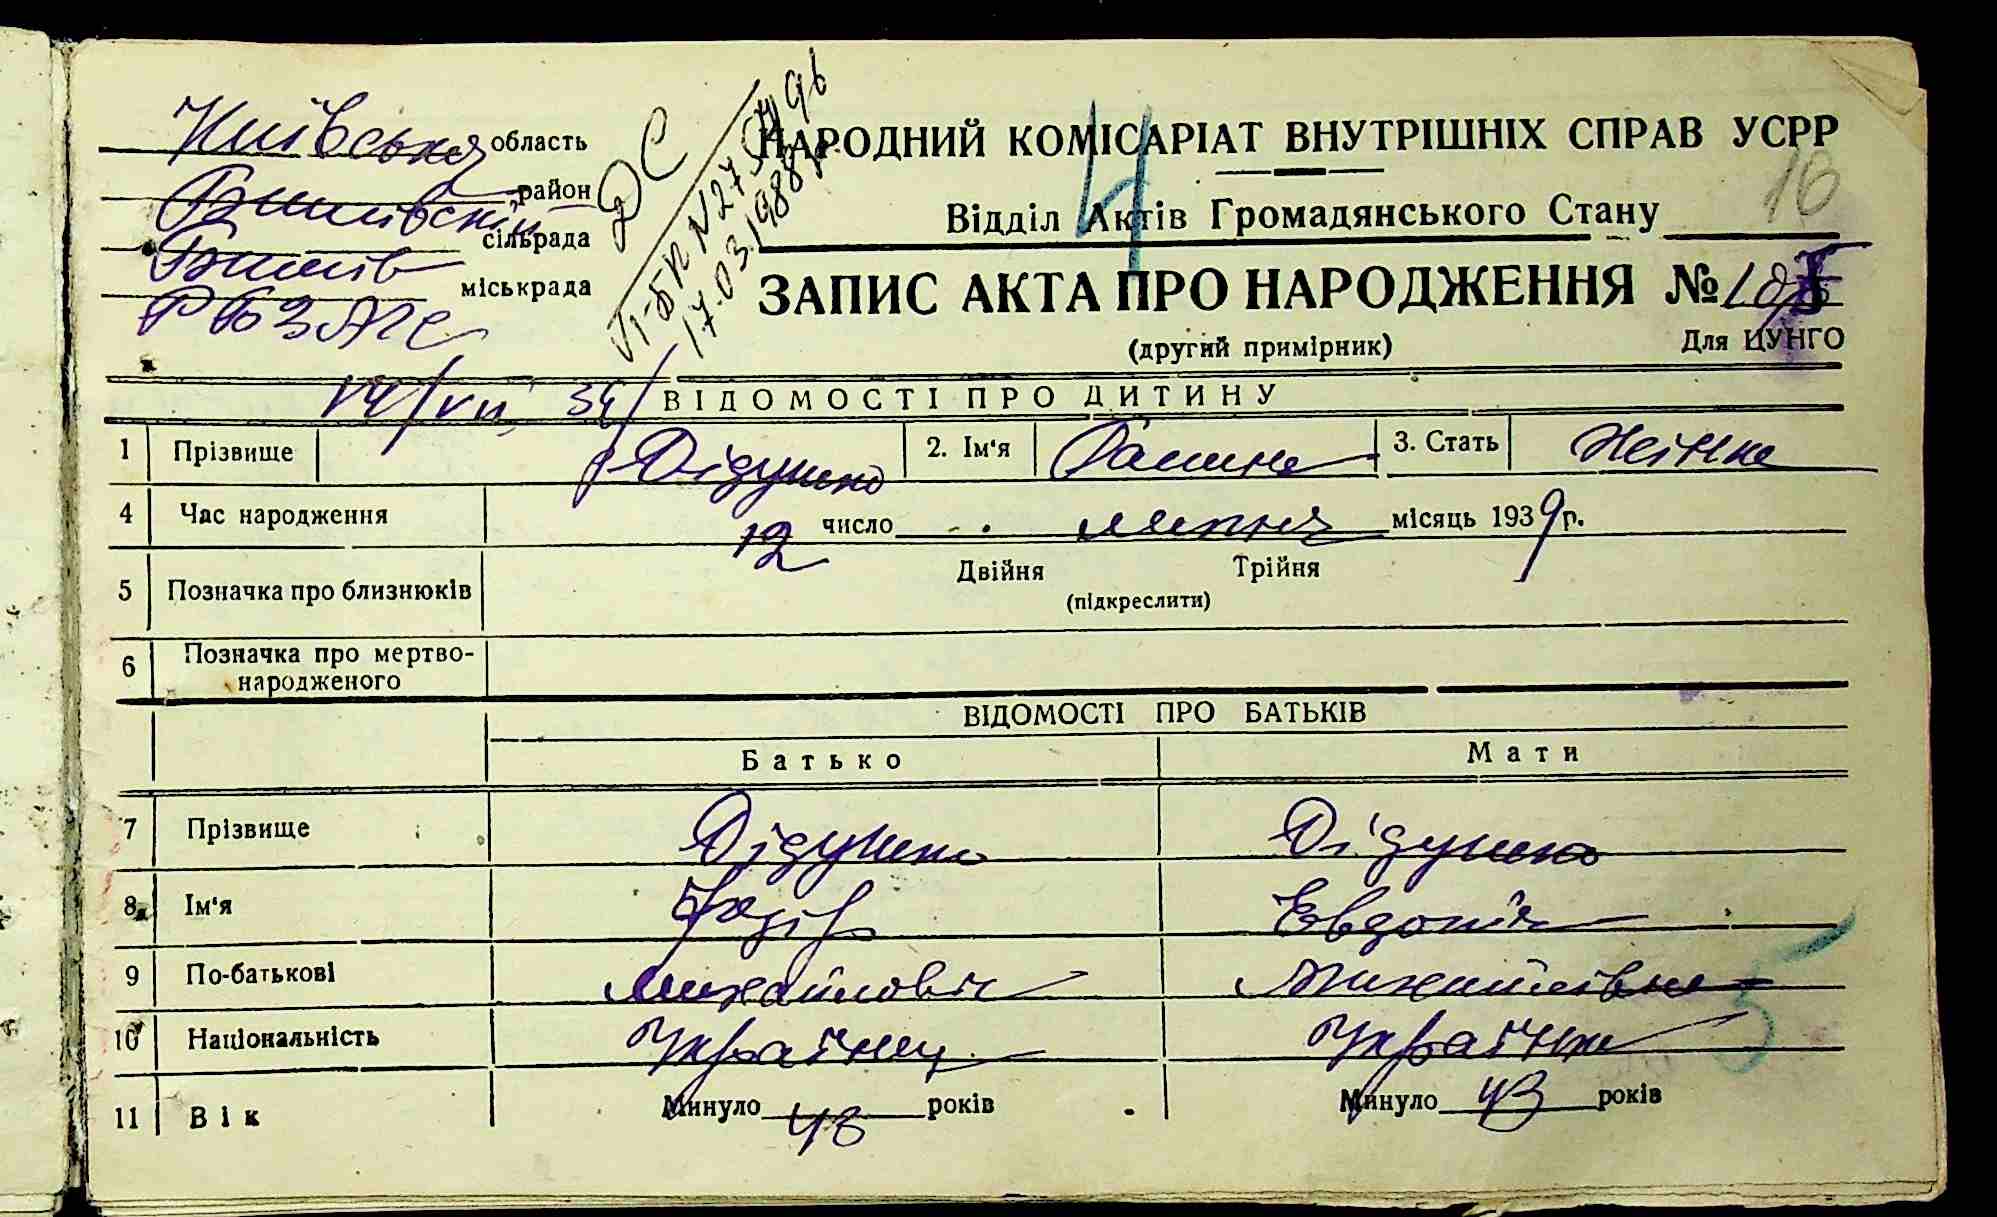 Київська область
Бишівський район
Бишів сільрада
міськрада
РБЗАГС
ДС
П-БК N 27
17.03.1988
НАРОДНИЙ КОМІСАРІАТ ВНУТРІШНІХ СПРАВ УСРР
Відділ Актів Громадянського Стану
16
ЗАПИС АКТА ПРО НАРОДЖЕННЯ №
(другий примірник) Для ЦУНГО
ВІДОМОСТІ ПРО ДИТИНУ
1 Прізвище Дідушко 2. Ім'я Галина 3. Стать
4 Час народження 12 число липня місяць 1939 р.
5 Позначка про близнюків Двійня Трійня
(підкреслити)
6 Позначка про мертво-
народженого
ВІДОМОСТІ ПРО БАТЬКІВ
Батько Мати
7 Прізвище Дідушко Дідушко
8 Ім'я Федір Евдокія
9 По-батькові Михайлович Михайлівна
10 Національність Украінец Украінка
11 Вік Минуло 46 років Минуло 43 років